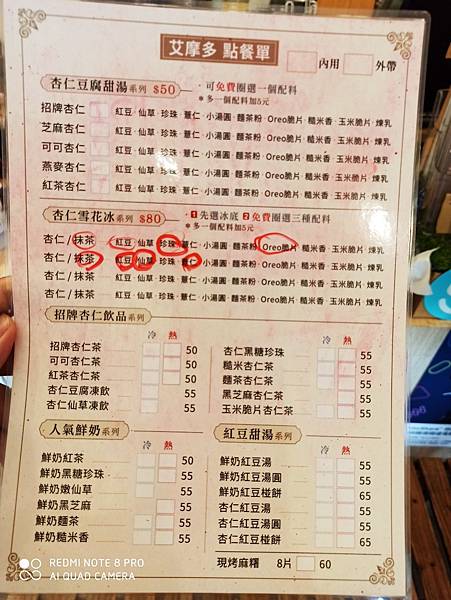 艾摩多 點餐單
內用 外帶
杏仁豆腐甜湯系列 $50
·可免費圈選一個配料
*多一個配料加5元
招牌杏仁 紅豆·仙草·珍珠·薏仁·小湯圓·麵茶粉·Oreo脆片·糙米香·玉米脆片·煉乳
芝麻杏仁 紅豆·仙草·珍珠·薏仁·小湯圓·麵茶粉·Oreo脆片·糙米香·玉米脆片·煉乳
可可杏仁 紅豆·仙草·珍珠·薏仁·小湯圓·麵茶粉·Oreo脆片·糙米香·玉米脆片·煉乳
燕麥杏仁 紅豆·仙草·珍珠·薏仁·小湯圓·麵茶粉·Oreo脆片·糙米香·玉米脆片·煉乳
紅茶杏仁 紅豆·仙草·珍珠·薏仁·小湯圓·麵茶粉·Oreo脆片·糙米香·玉米脆片·煉乳
杏仁雪花冰系列 $80
·1先選冰底 2免費圈選三種配料
*多一個配料加5元
杏仁/抹茶 紅豆·仙草·珍珠·薏仁·小湯圓·麵茶粉·Oreo脆片·糙米香·玉米脆片·煉乳
杏仁/抹茶 紅豆·仙草·珍珠·薏仁·小湯圓·麵茶粉·Oreo脆片·糙米香·玉米脆片·煉乳
杏仁/抹茶 紅豆·仙草·珍珠·薏仁·小湯圓·麵茶粉·Oreo脆片·糙米香·玉米脆片·煉乳
杏仁/抹茶 紅豆·仙草·珍珠·薏仁·小湯圓·麵茶粉·Oreo脆片·糙米香·玉米脆片·煉乳
招牌杏仁飲品系列
冷 熱
招牌杏仁茶 50
可可杏仁茶 50
紅茶杏仁茶 50
杏仁豆腐凍飲 55
杏仁仙草凍飲 55
冷 熱
杏仁黑糖珍珠 55
糙米杏仁茶 55
麵茶杏仁茶 55
黑芝麻杏仁茶 55
玉米脆片杏仁茶 55
人氣鮮奶系列
冷 熱
鮮奶紅茶 50
鮮奶黑糖珍珠 55
鮮奶嫩仙草 55
鮮奶黑芝麻 55
鮮奶麵茶 55
鮮奶糙米香 55
紅豆甜湯系列
冷 熱
鮮奶紅豆湯 55
鮮奶紅豆湯圓 55
鮮奶紅豆椪餅 65
杏仁紅豆湯 55
杏仁紅豆湯圓 55
杏仁紅豆椪餅 65
現烤麻糬 8片 60
REDMI NOTE 8 PRO
AI QUAD CAMERA